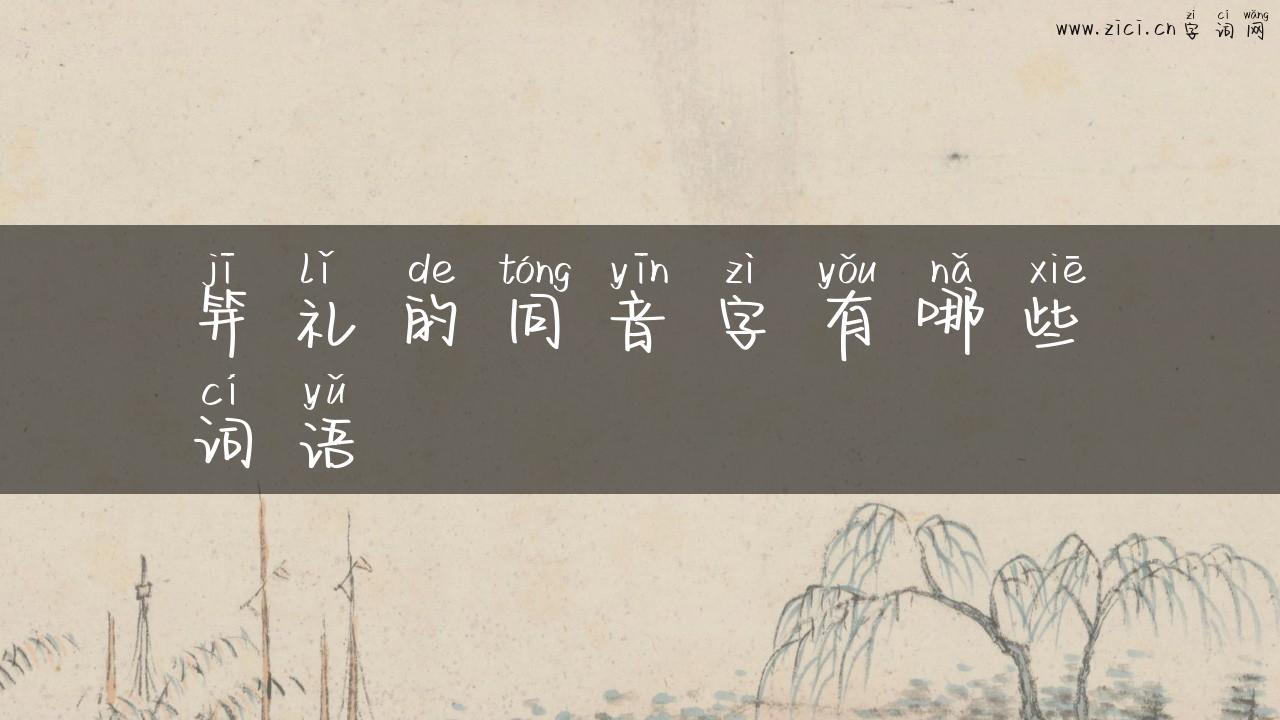 zì cí wǎng
www.zici.cn字词网
jī lǐ de tóng yīn zì yǒu nǎ xiē
笄礼的同音字有哪些
cí yǔ
词语